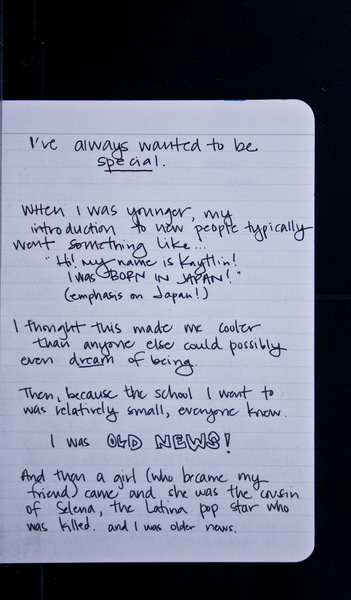 I've always wanted to be
special.
When I was younger, my
introduction to new people typically
went something like...
"Hi! My name is Kaytlin!
I was BORN IN JAPAN!"
(emphasis on Japan!)
I thought this made me cooler
than anyone else could possibly
even dream of being.
Then, because the school I went to
was relatively small, everyone knew.
I was OLD NEWS!
And then a girl (who became my
friend) came and she was the cousin
of Selena, the Latina pop star who
was killed. and I was older news.